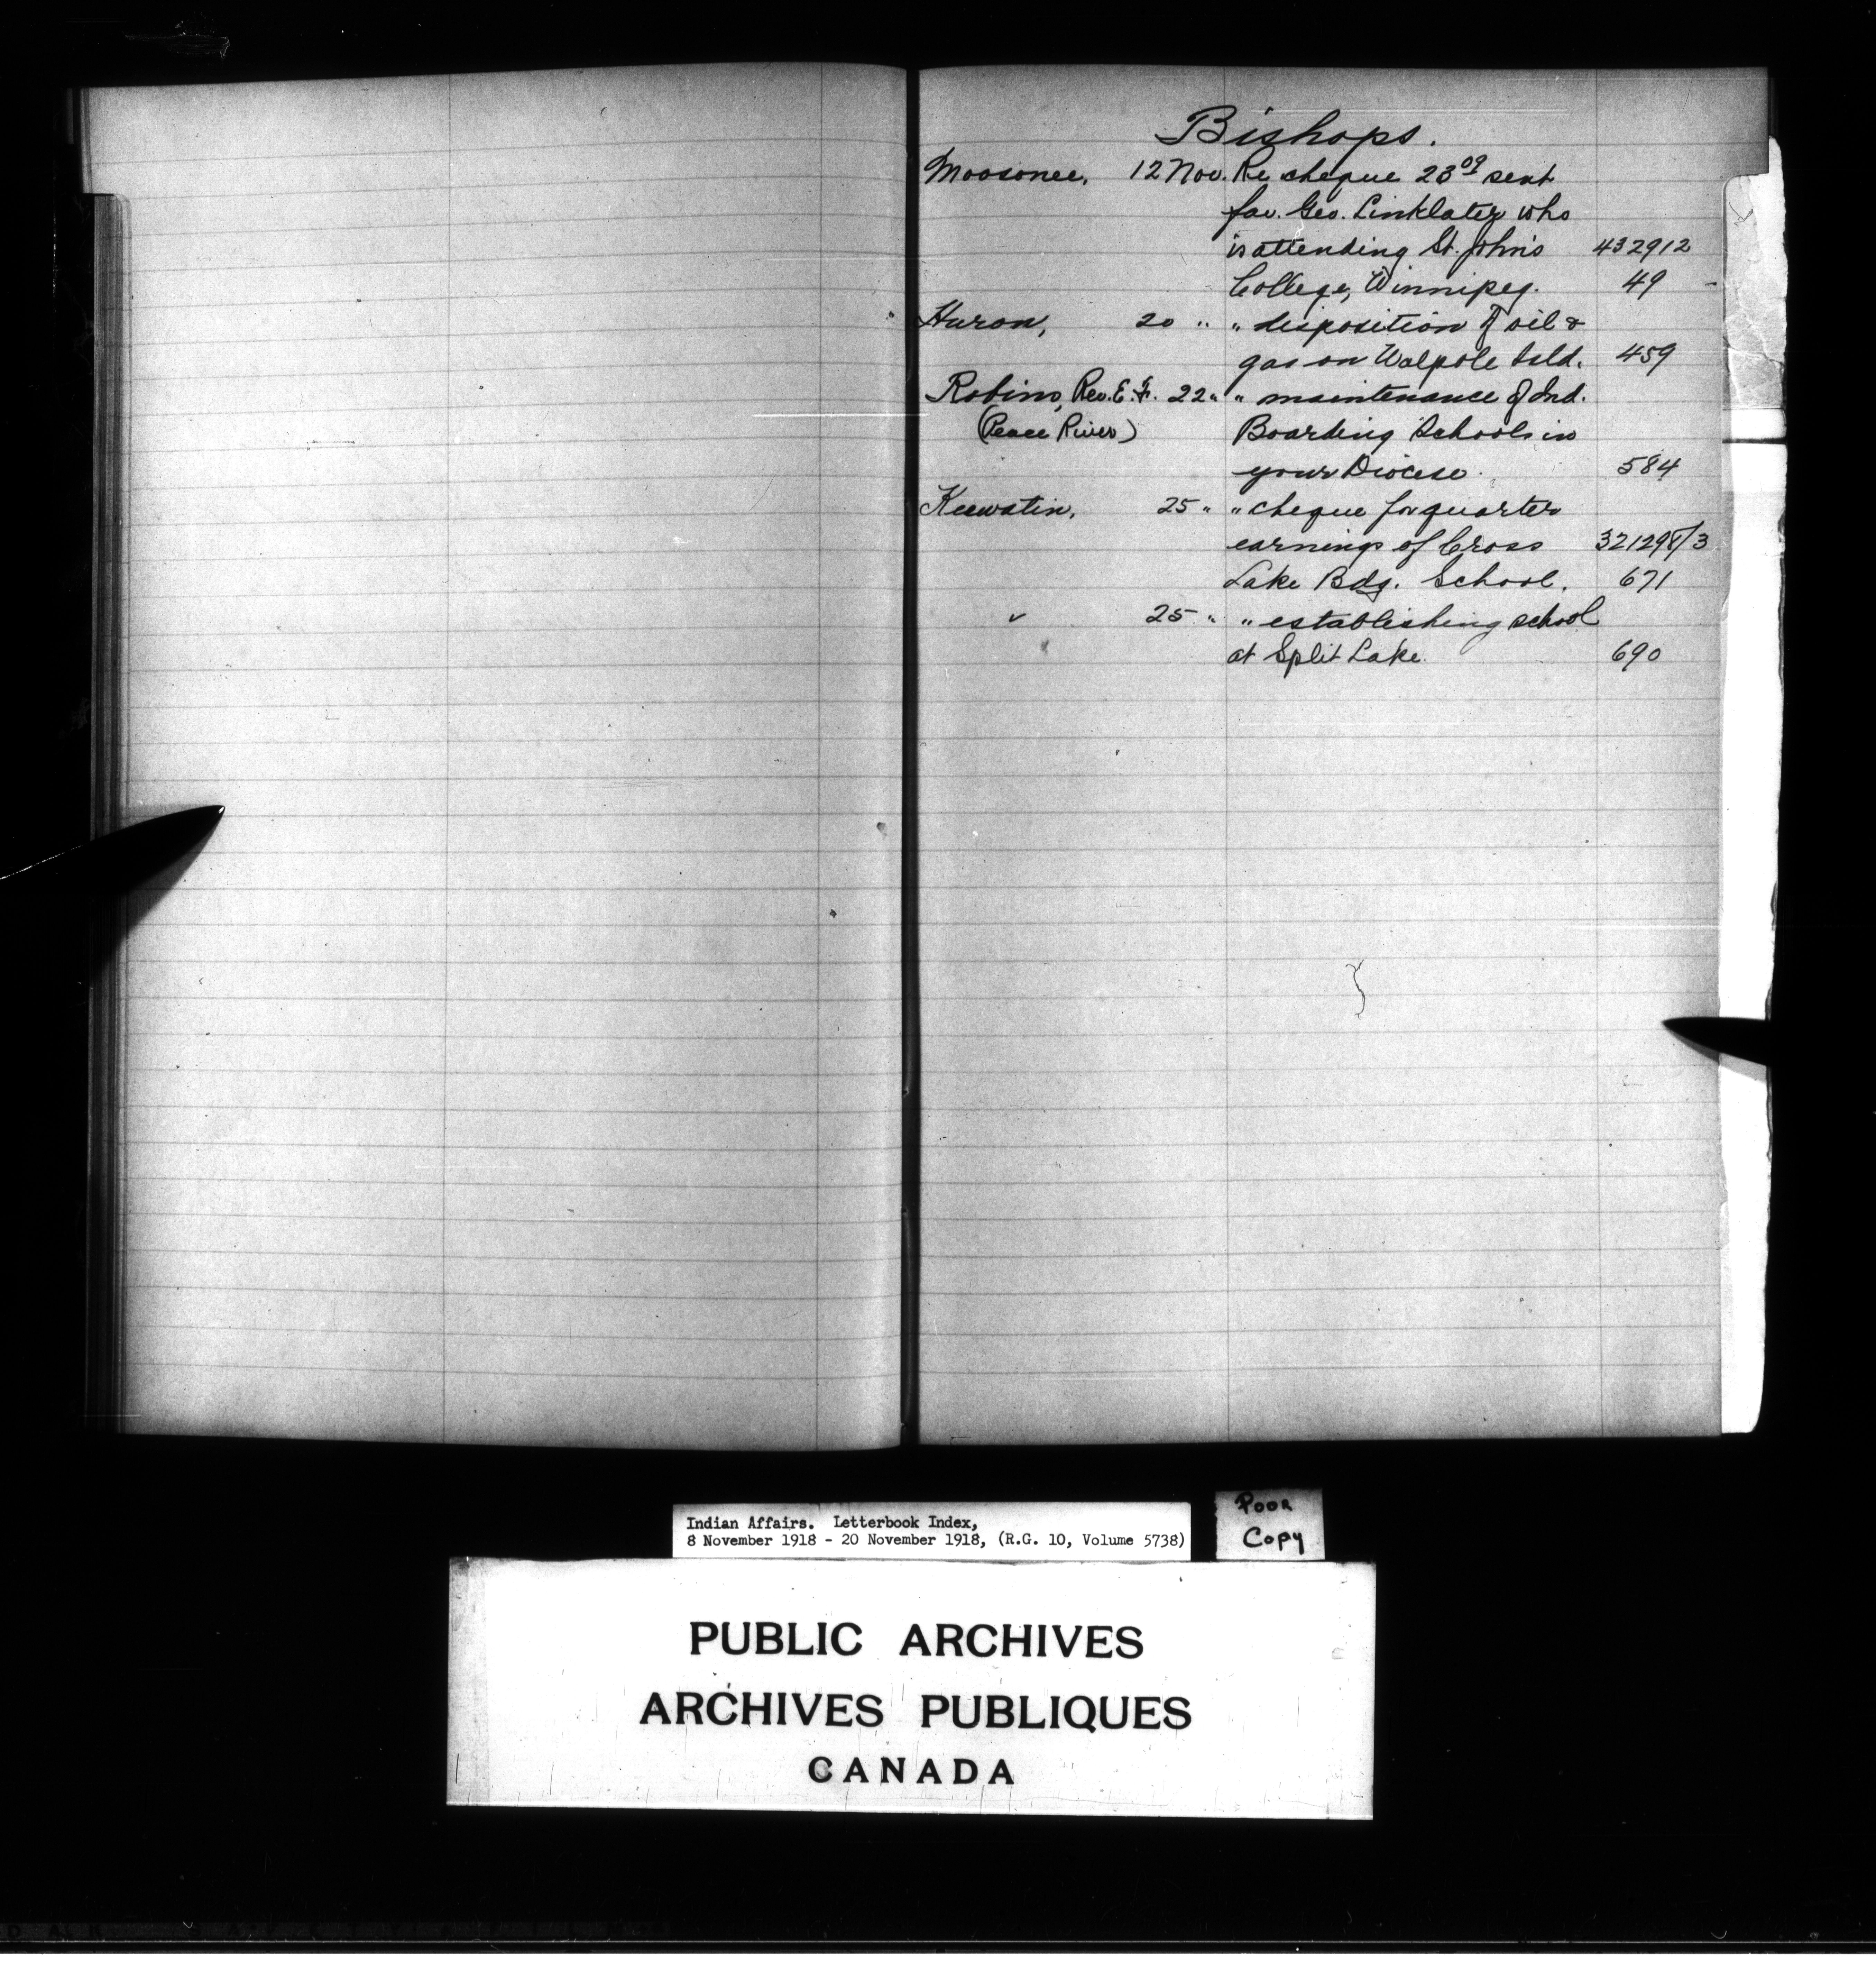 Bishops.
Moosonee, 12 Nov. Re cheque 23⁰⁹ sent
fav. Geo. Linklater who
is attending St. John's 432912
College, Winnipeg. 49
Huron, 20 " " disposition of oil &
gas on Walpole Isld. 459
Robins, Rev. E. F. 22 " " maintenance of Ind.
(Peace River) Boarding Schools in
your Diocese. 584
Keewatin, 25 " " cheque for quarter
earnings of Cross 321298/3
Lake Bdg. School. 671
" 25 " " establishing school
at Split Lake. 690
Indian Affairs. Letterbook Index,
8 November 1918 - 20 November 1918, (R.G. 10, Volume 5738)
Poor
Copy
PUBLIC ARCHIVES
ARCHIVES PUBLIQUES
CANADA